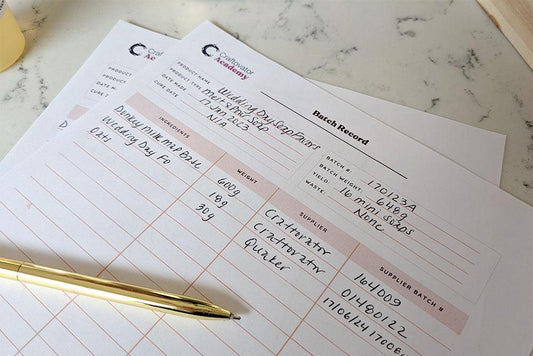 Craftovator
Academy
Batch Record
PRODUCT NAME Wedding Day Soap Favors
PRODUCT TYPE Melt & Pour Soap
DATE MADE 17 Jan 2023
CURE DATE N/A
BATCH # 170123A
BATCH WEIGHT: 648g
YIELD: 16 mini soaps
WASTE: None
INGREDIENTS WEIGHT SUPPLIER SUPPLIER BATCH #
Donkey Milk M&P Base 600g Craftovator 164009
Wedding Day FO 18g Craftovator 01480122
Oats 30g Quaker 17/06/24
Cra
Aca
PRODUCT
PRODUCT
DATE M
CURE